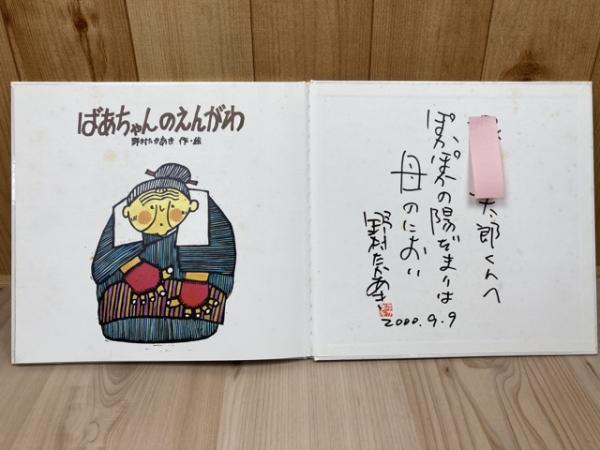 ばあちゃんのえんがわ
野村たかあき 作・絵
太郎くんへ
ぽかぽかの陽だまりは
母のにおい
野村たかあき
2000.9.9